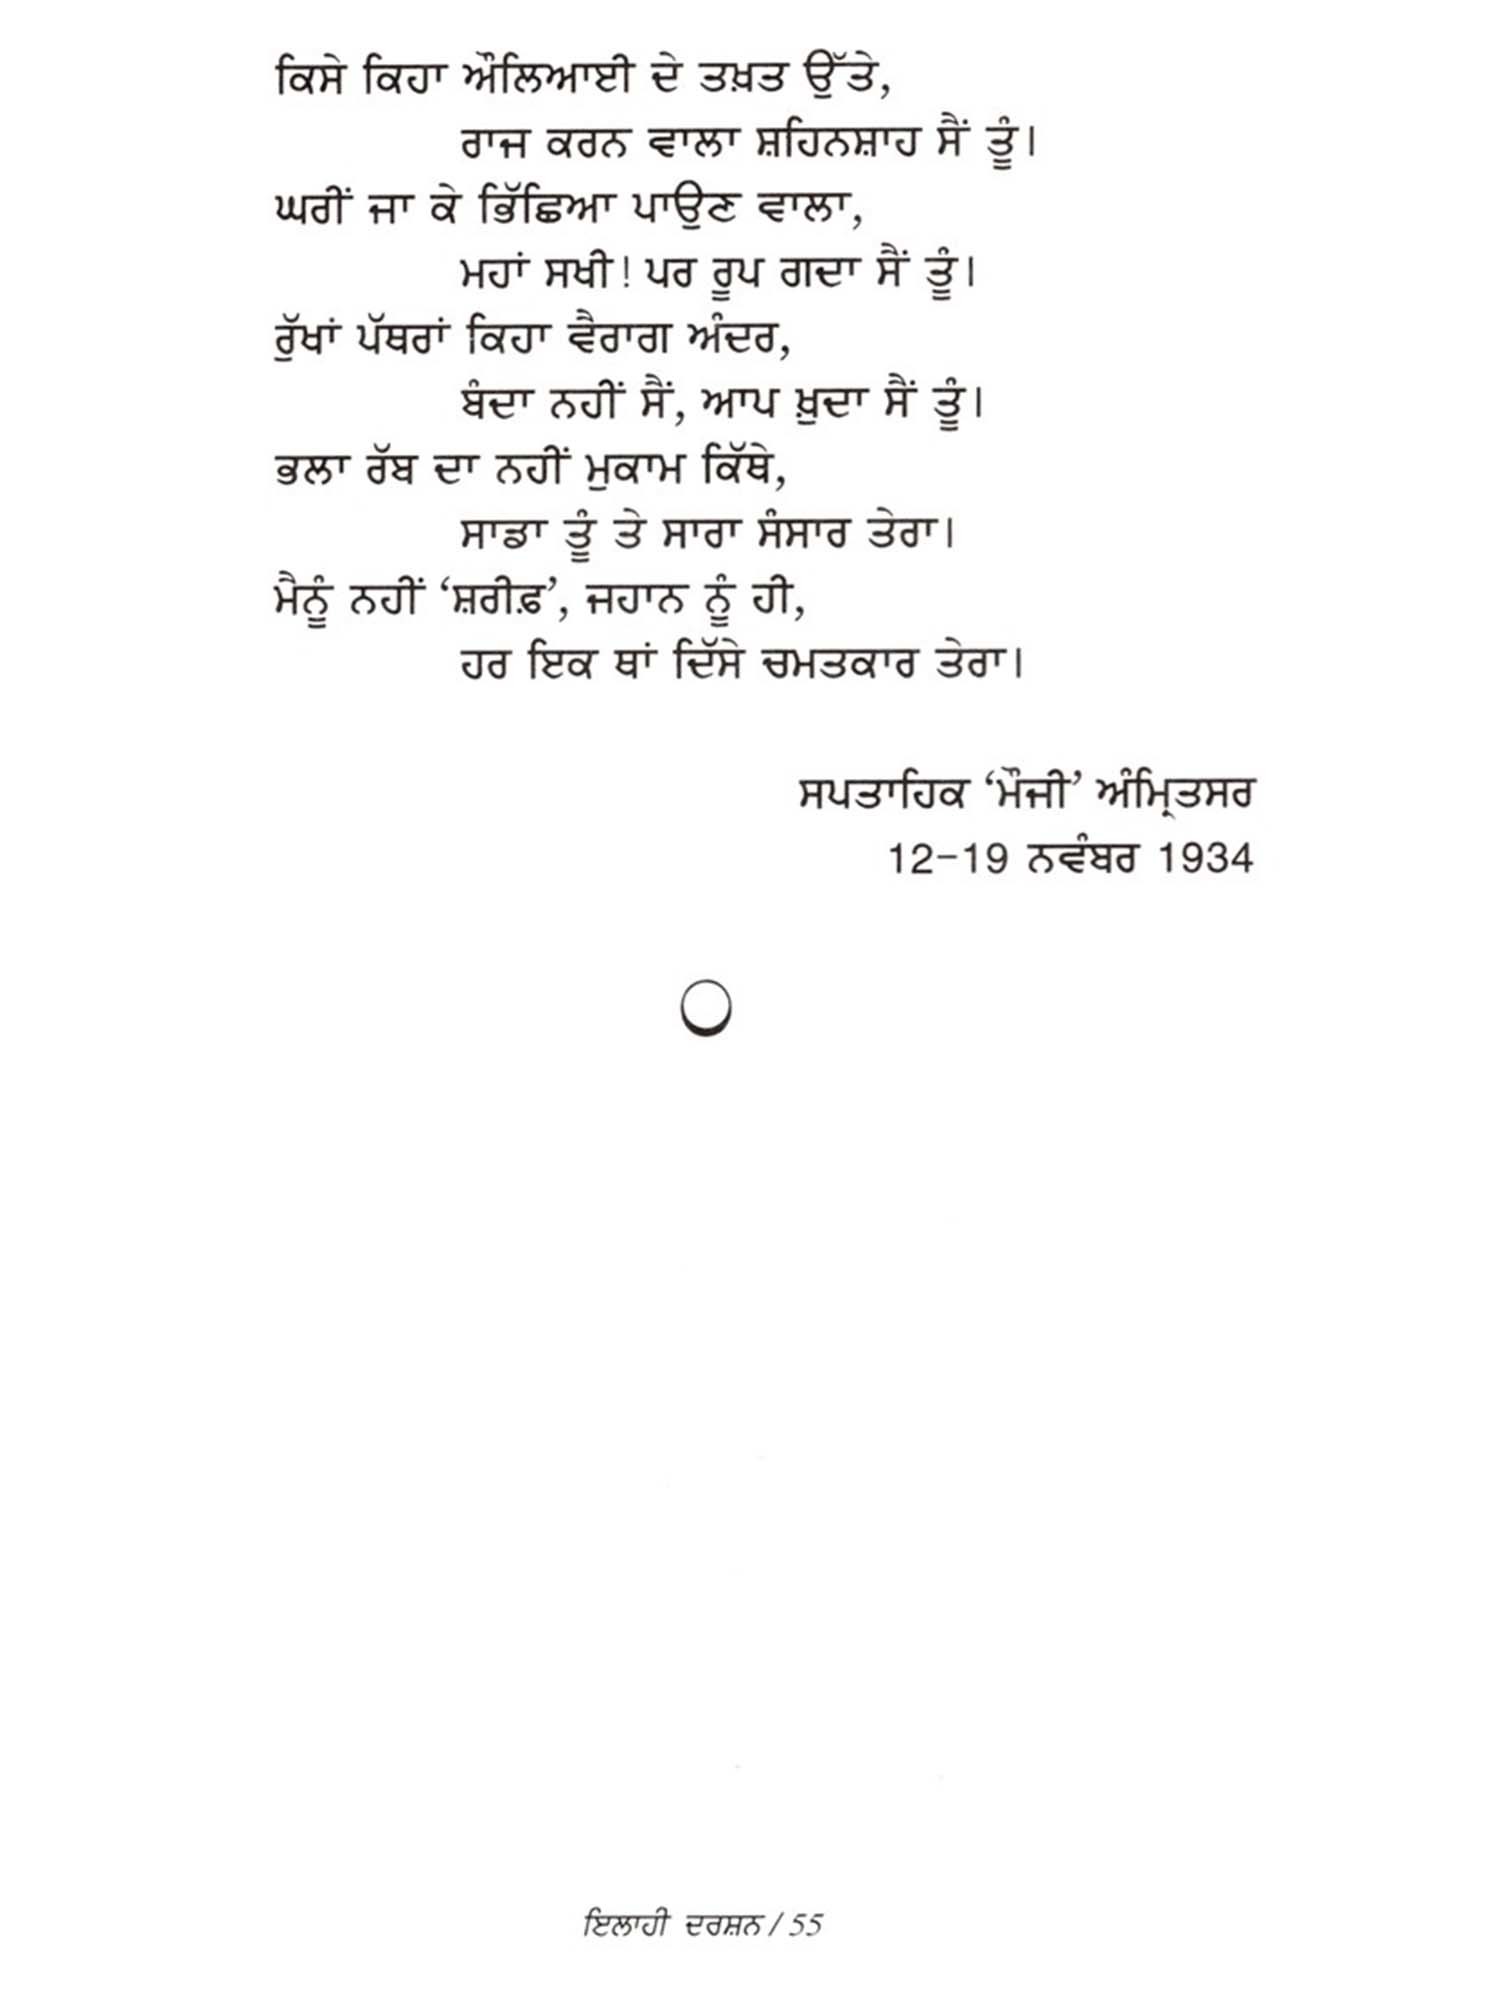 ਕਿਸੇ ਕਿਹਾ ਔਲਿਆਈ ਦੇ ਤਖ਼ਤ ਉੱਤੇ,
ਰਾਜ ਕਰਨ ਵਾਲਾ ਸ਼ਹਿਨਸ਼ਾਹ ਸੈਂ ਤੂੰ।
ਘਰੀਂ ਜਾ ਕੇ ਭਿੱਛਿਆ ਪਾਉਣ ਵਾਲਾ,
ਮਹਾਂ ਸਖੀ! ਪਰ ਰੂਪ ਗਦਾ ਸੈਂ ਤੂੰ।
ਰੁੱਖਾਂ ਪੱਥਰਾਂ ਕਿਹਾ ਵੈਰਾਗ ਅੰਦਰ,
ਬੰਦਾ ਨਹੀਂ ਸੈਂ, ਆਪ ਖ਼ੁਦਾ ਸੈਂ ਤੂੰ।
ਭਲਾ ਰੱਬ ਦਾ ਨਹੀਂ ਮੁਕਾਮ ਕਿੱਥੇ,
ਸਾਡਾ ਤੂੰ ਤੇ ਸਾਰਾ ਸੰਸਾਰ ਤੇਰਾ।
ਮੈਨੂੰ ਨਹੀਂ ‘ਸ਼ਰੀਫ਼’, ਜਹਾਨ ਨੂੰ ਹੀ,
ਹਰ ਇਕ ਥਾਂ ਦਿੱਸੇ ਚਮਤਕਾਰ ਤੇਰਾ।
ਸਪਤਾਹਿਕ ‘ਮੌਜੀ’ ਅੰਮ੍ਰਿਤਸਰ
12-19 ਨਵੰਬਰ 1934
ਇਲਾਹੀ ਦਰਸ਼ਨ/55